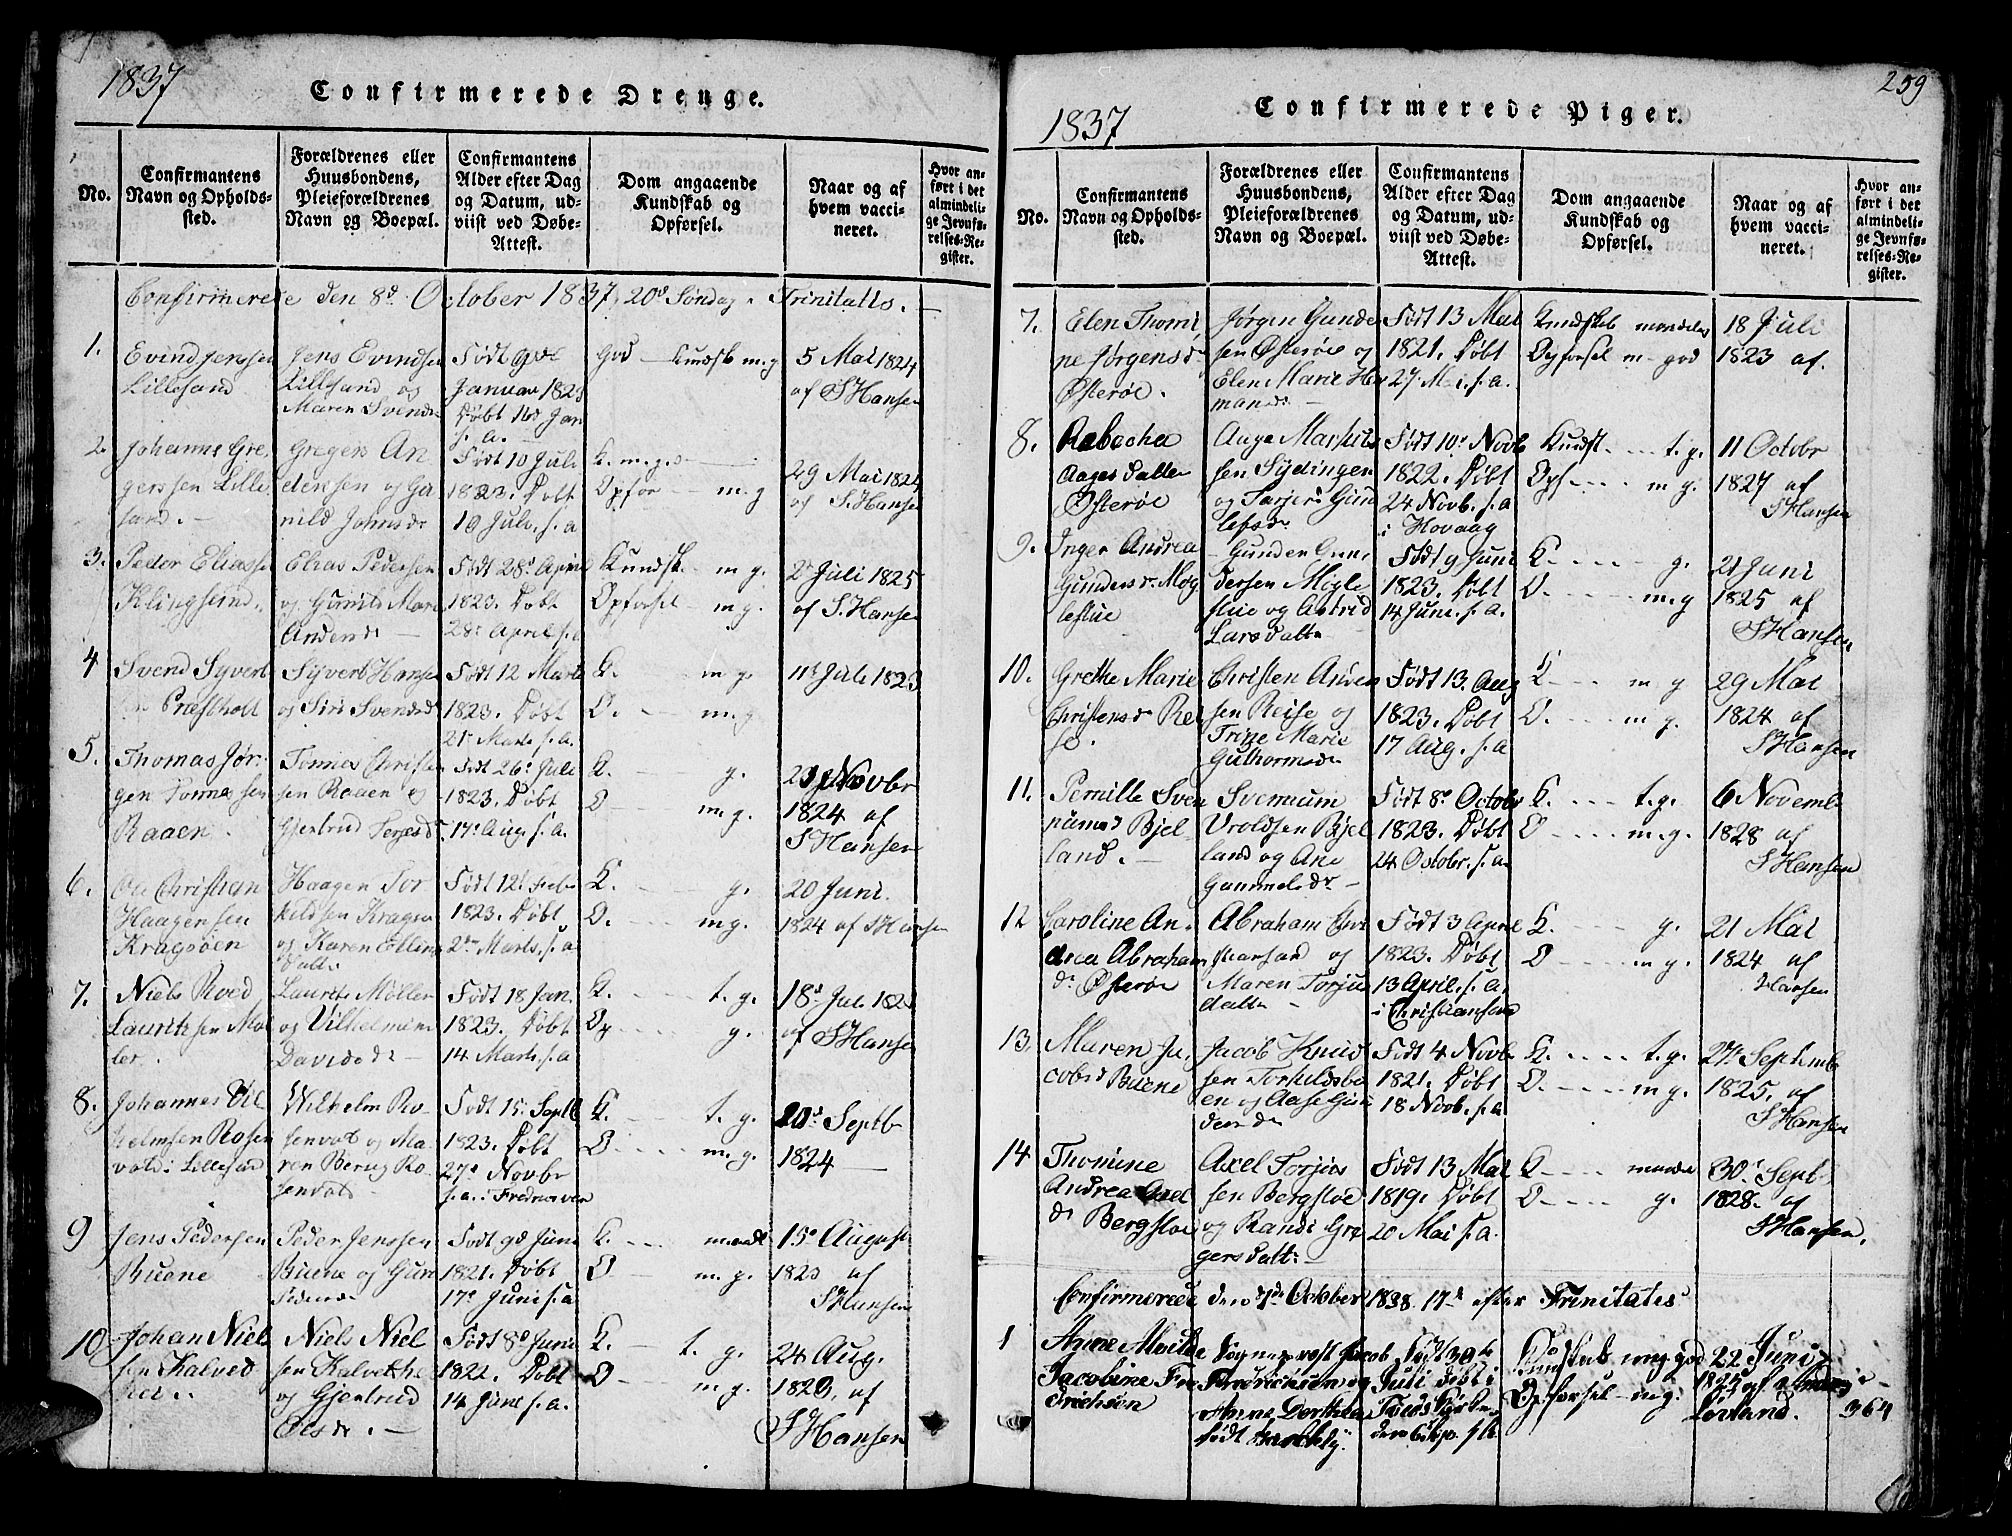 1837
Confirmerede Drenge.
No.
Confirmantens
Navn og Opholds-
sted.
Forældrenes eller
Huusbondens,
Pleieforældrenes
Navn og Boepæl.
Confirmantens
Alder efter Dag
og Datum, ud-
viist ved Døbe-
Attest.
Dom angaaende
Kundskab og
Opførsel.
Naar og af
hvem vacci-
neret.
Hvor an-
ført i det
almindeli-
ge Jevnfø-
relses-Re-
gister.
Confirmerede den 8d October 1837, 20d Søndag Trinitatis.
1.
Evind Jenssen
Lillesand
Jens Evindsen
Lillesand og
Maren Svends
Født 9de
Januar 1823
Døbt 16d Jan
s. a.
God Kundsk m. g
5 Mai 1824
af S Hansen
2.
Johannes Gre-
gerssen Lille-
sand.
Gregers An
densen og Gu
nild Johnsdr
Født 10 Juli
1823. Døbt
19 Juli. s. a
K. m. g.
Opfør m. g
29 Mai 1824
af S. Hansen
3.
Peder Eliassen
Klingsund.
Elias Pedersen
og Gunild Marie
Andersdr
Født 28d April
1823. Døbt
28d April s. a
Kundsk. m g.
Opførsel m. g.
2d Juli 1825
af S. Hansen
4
Svend Syvert
Præstholt
Syvert Hansen
og Siri Svendsd
Født 12 Marts
1823. Døbt
21d Marts s. a.
K. m. g.
O. m. g
11d Juli 1823
5.
Thomas Jør-
gen Tønnessen
Raaen.
Tønnes Christen
sen Raaen og
Gjertrud Terjesd
Født 26d Juli
1823. Døbt
17d Aug. s. a.
K. g.
O m. g.
Novbr
1824 af
S Hansen
6.
Ole Christian
Haagensen
Kragsøen
Haagen Tor
kildsen Kragsø
og Karen Ellens
Datter
Født 12d Febr
1823. Døbt
2den Marts, s. a
K. g.
O. m g.
20 Juni
1824 af S Hansen
7.
Niels Roed
Lauritzen Møl-
ler.
Laurits Møller
og Vilhelmine
Davidsdr
Født 18 Jan.
1823. Døbt
14 Marts. s. a
K. t. g.
Op g.
18d Juli 1823
af S Hansen
8.
Johannes Vil
helmsen Rosen
vold i Lillesand
Wilhelm Ro-
senvold og Ma-
ren Berug Ro-
senvold
Født 15d Septb
1823. Døbt
27d Novbr
s. a. i Fredricsværn
K. t. g.
O m. g.
20d Septb
1824
9
Jens Pedersen
Buene
Peder Jenssen
Buene og Gun
Pedersdr
Født 9d Juni
1821. Døbt
17d Juni s. a
K. maadl
O m. g.
15d August
1823 af
S Hansen
10
Johan Niel-
sen Kalved
hei.
Niels Niel
sen Kalvehe
og Gjertrud
Olsdr.
Født 8d Juni
1822. Døbt
14 Juni s. a.
K. t. g.
O m. g.
24 Aug.
1823, af
S Hansen
259
1837
Confirmerede Piger.
No.
Confirmantens
Navn og Opholds-
sted.
Forældrenes eller
Huusbondens,
Pleieforældrenes
Navn og Boepæl.
Confirmantens
Alder efter Dag
og Datum, ud-
viist ved Døbe-
Attest.
Dom angaaende
Kundskab og
Opførsel.
Naar og af
hvem vacci-
neret.
Hvor an-
ført i det
almindeli-
ge Jevnfø-
relses-Re-
gister.
7.
Elen Thomi
ne Jørgensdr
Østerøe.
Jørgen Gunder
sen Østerøe og
Elen Marie Her
mansdr
Født 13 Mai
1821. Døbt
27. Mai. s. a.
Kundskab maadelig
Opførsel m. god
18 Juli
1823 af.
8.
Rebecha
Aages datter
Østerøe
Aage Markus
sen Sydingen
og Tarjer Gun
lefsdr
Født 10d Novb
1822. Døbt
24 Novb. s. a
i Hovaag
Kundsk. t. g.
Opf m g.
11 Octobr
1827 af
S Hansen
9.
Inger Andrea
Gundersdr Mog
lestue
Gunder Gun-
dersen Mogle
stue og Astrid
Larsdatter
Født 9 Juni
1823. Døbt
14 Juni. s. a.
K. g.
O. m. g
21 Juni
1825 af
S Hansen,
10.
Grethe Marie
Christensdr Rei
se.
Christen Anders
sen Reise og
Trine Marie
Guthormsdr
Født 13. Aug
1823. Døbt
17 Aug. s. a
K m g
O. m. g.
29 Mai
1824 af
S Hansen
11.
Pernille Sven
nums Bjel-
land.
Svennum
Uroldsen Bjel
land og Ane
Gammelsdr
Født 8d Octobr
1823. Døbt
24 Octobr. s. a
K. t. g.
O m. g.
6 Novemb.
1828 af
S Hansen
12
Caroline An-
drea Abraham
dr Østerøe
Abraham Chri
stiansand og
Maren Torju
datter
Født 3 April
1823. Døbt
13 April. s. a.
i Christiansand
K. g.
O m g.
21 Mai
1824 af
Hansen
13.
Maren Ja-
cobsd Buene
Jacob Knud
sen Torkildsbu
en og Aase Gun
dersdr
Født 4 Novb.
1821. Døbt
18 Novb. s. a
K. t. g.
O. m g.
27 Septemb
1825, af
S Hansen
14
Thomine
Andrea Axel
dr Bergstøe
Axel Torjus
sen Bergstøe
og Randi Gre
gersdatter
Født 13 Mai
1819. Døbt
20 Mai s. a.
K maade
O. g.
30d Sept
1828. af
S Hansen,
Confirmerede den 7de October 1838. 17d efter Trinitatis
1
Anne Mathilde
Jacobine Fre
drichsen
Sogneprest Jacob
Fredrichsen og
Anne Dorthea
født
Født 30te
Juli døbt i
Kirke
den 6 Sep. s. A.
Kundskab meg. god
Opførsel m. g.
22 Juni
1825 af
Løvland.
364